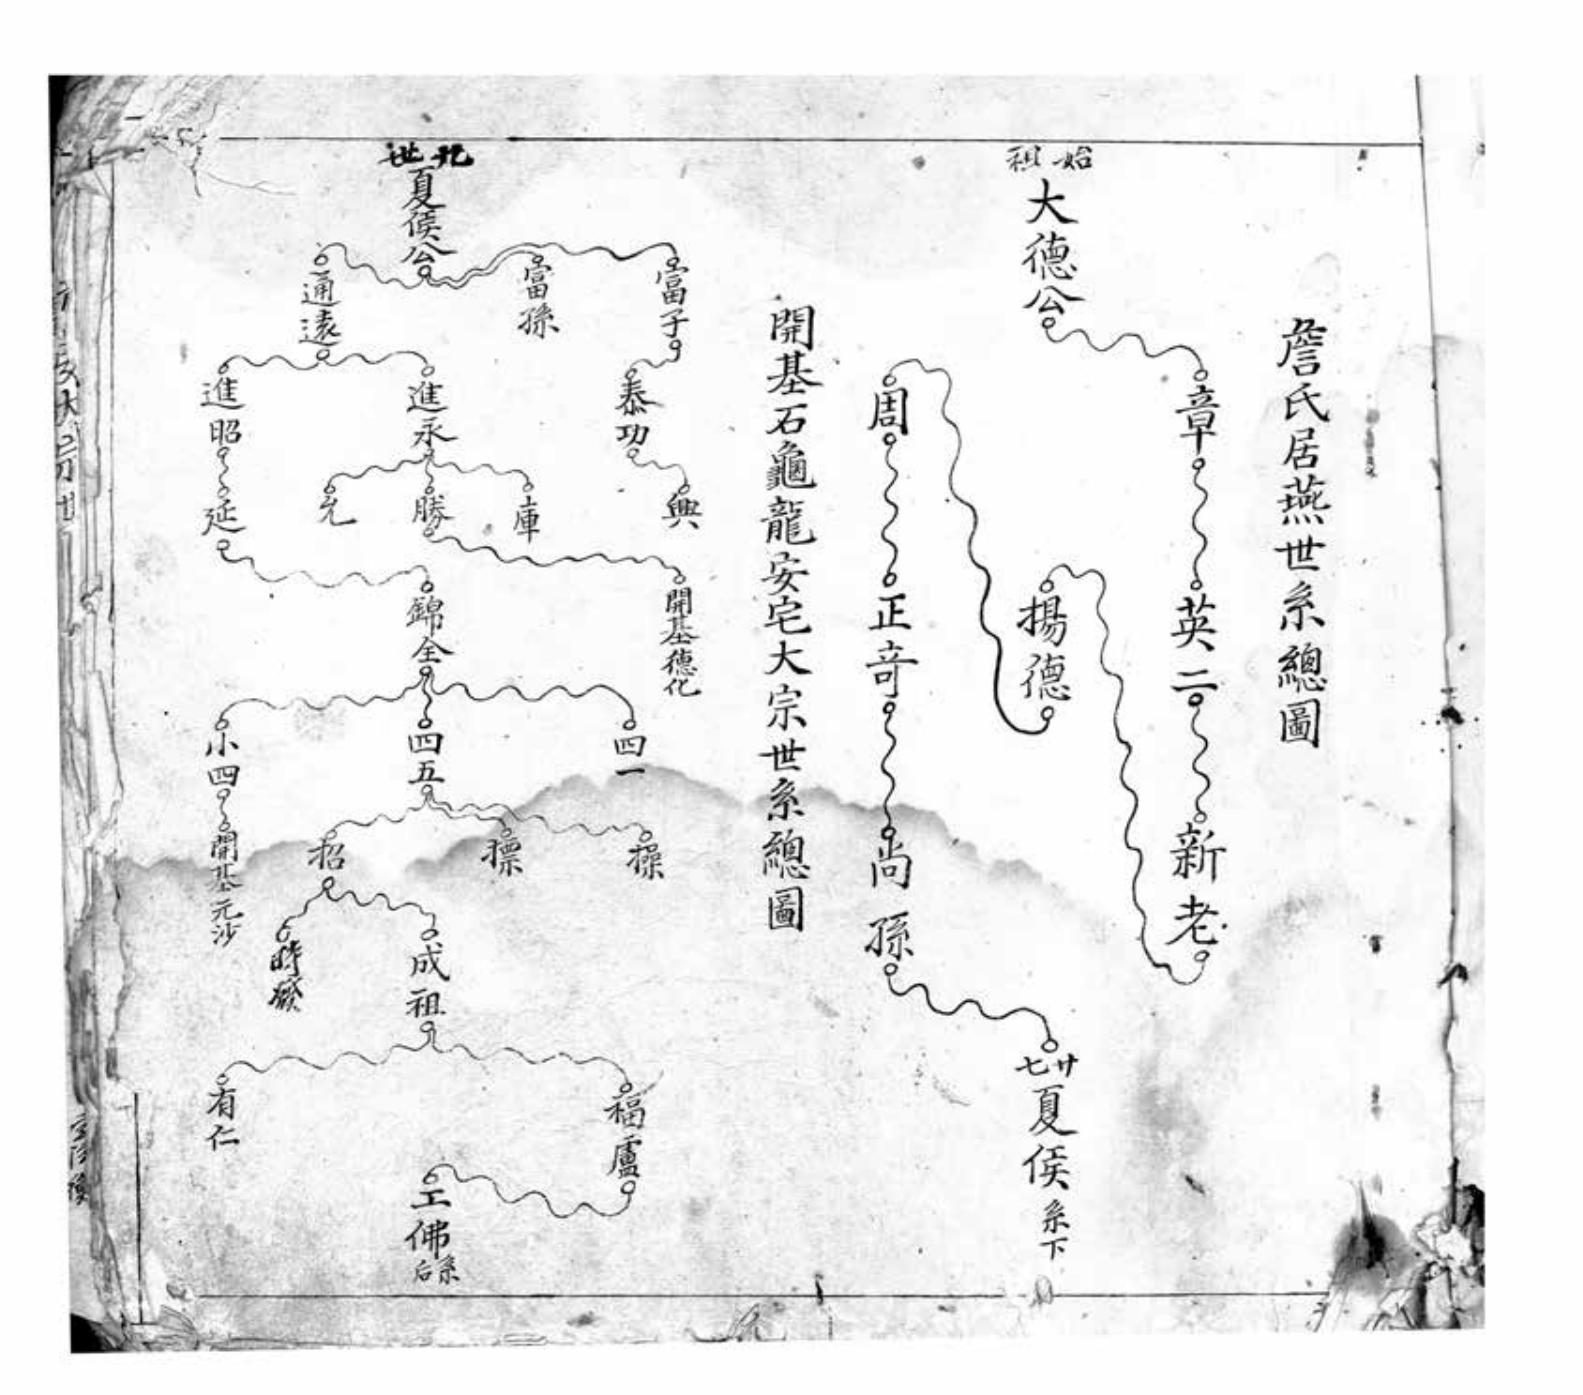 詹氏居燕世系總圖
始祖
大德公
章
英二
新老
揚德
周
正奇
尚孫
廿七
夏侯系下
開基石龜龍安宅大宗世系總圖
世
夏侯公
富子
富孫
通遠
泰功
進永
進昭
興
庫
勝
延
開基德化
錦全
四一
四五
小四
開基元沙
操
標
招
成祖
時發
福廬
有仁
工佛
后系